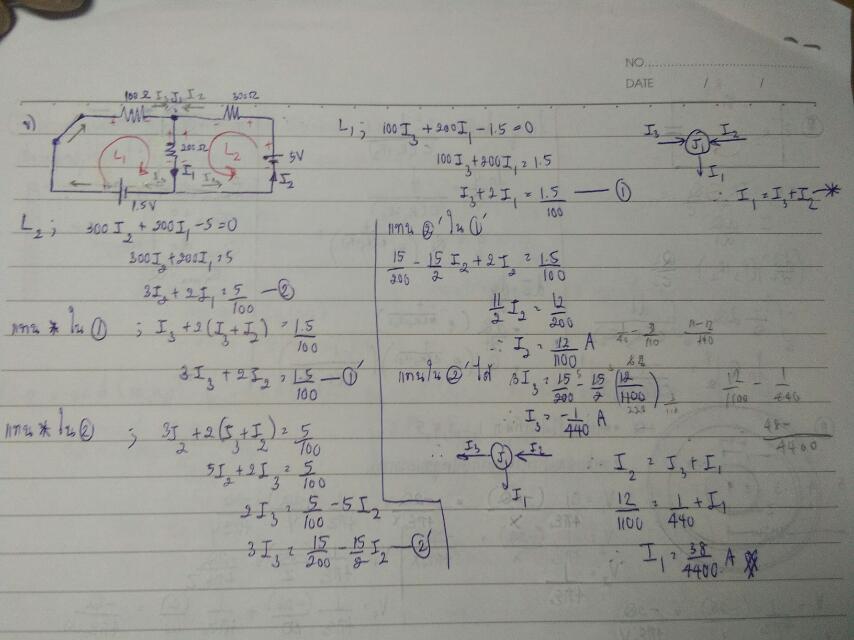 NO.
DATE / /
ข)
100Ω I₃ J₁ I₂ 300Ω
200Ω
L₁ L₂ 5V
I₁ I₂
1.5V
L₁; 100I₃ + 200I₁ - 1.5 = 0
100I₃ + 200I₁ = 1.5
I₃ + 2I₁ = 1.5/100 — ①
I₃ J₁ I₂
I₁
∴ I₁ = I₃ + I₂ — *
L₂; 300I₂ + 200I₁ - 5 = 0
300I₂ + 200I₁ = 5
3I₂ + 2I₁ = 5/100 — ②
แทน * ใน ① ; I₃ + 2(I₃ + I₂) = 1.5/100
3I₃ + 2I₂ = 1.5/100 — ①'
แทน * ใน ② ; 3I₂ + 2(I₃ + I₂) = 5/100
5I₂ + 2I₃ = 5/100
2I₃ = 5/100 - 5I₂
3I₃ = 15/200 - 15/2 I₂ — ②'
แทน ②' ใน ①'
15/200 - 15/2 I₂ + 2I₂ = 1.5/100
11/2 I₂ = 12/200
∴ I₂ = 12/1100 A
แทนใน ②' ได้ 3I₃ = 15/200 - 15/2 (12/1100)
12/1100 - 1/440
∴ I₃ = -1/440 A
4400
∴ I₃ J₁ I₂
I₁
∴ I₂ = I₃ + I₁
12/1100 = 1/440 + I₁
∴ I₁ = 38/4400 A